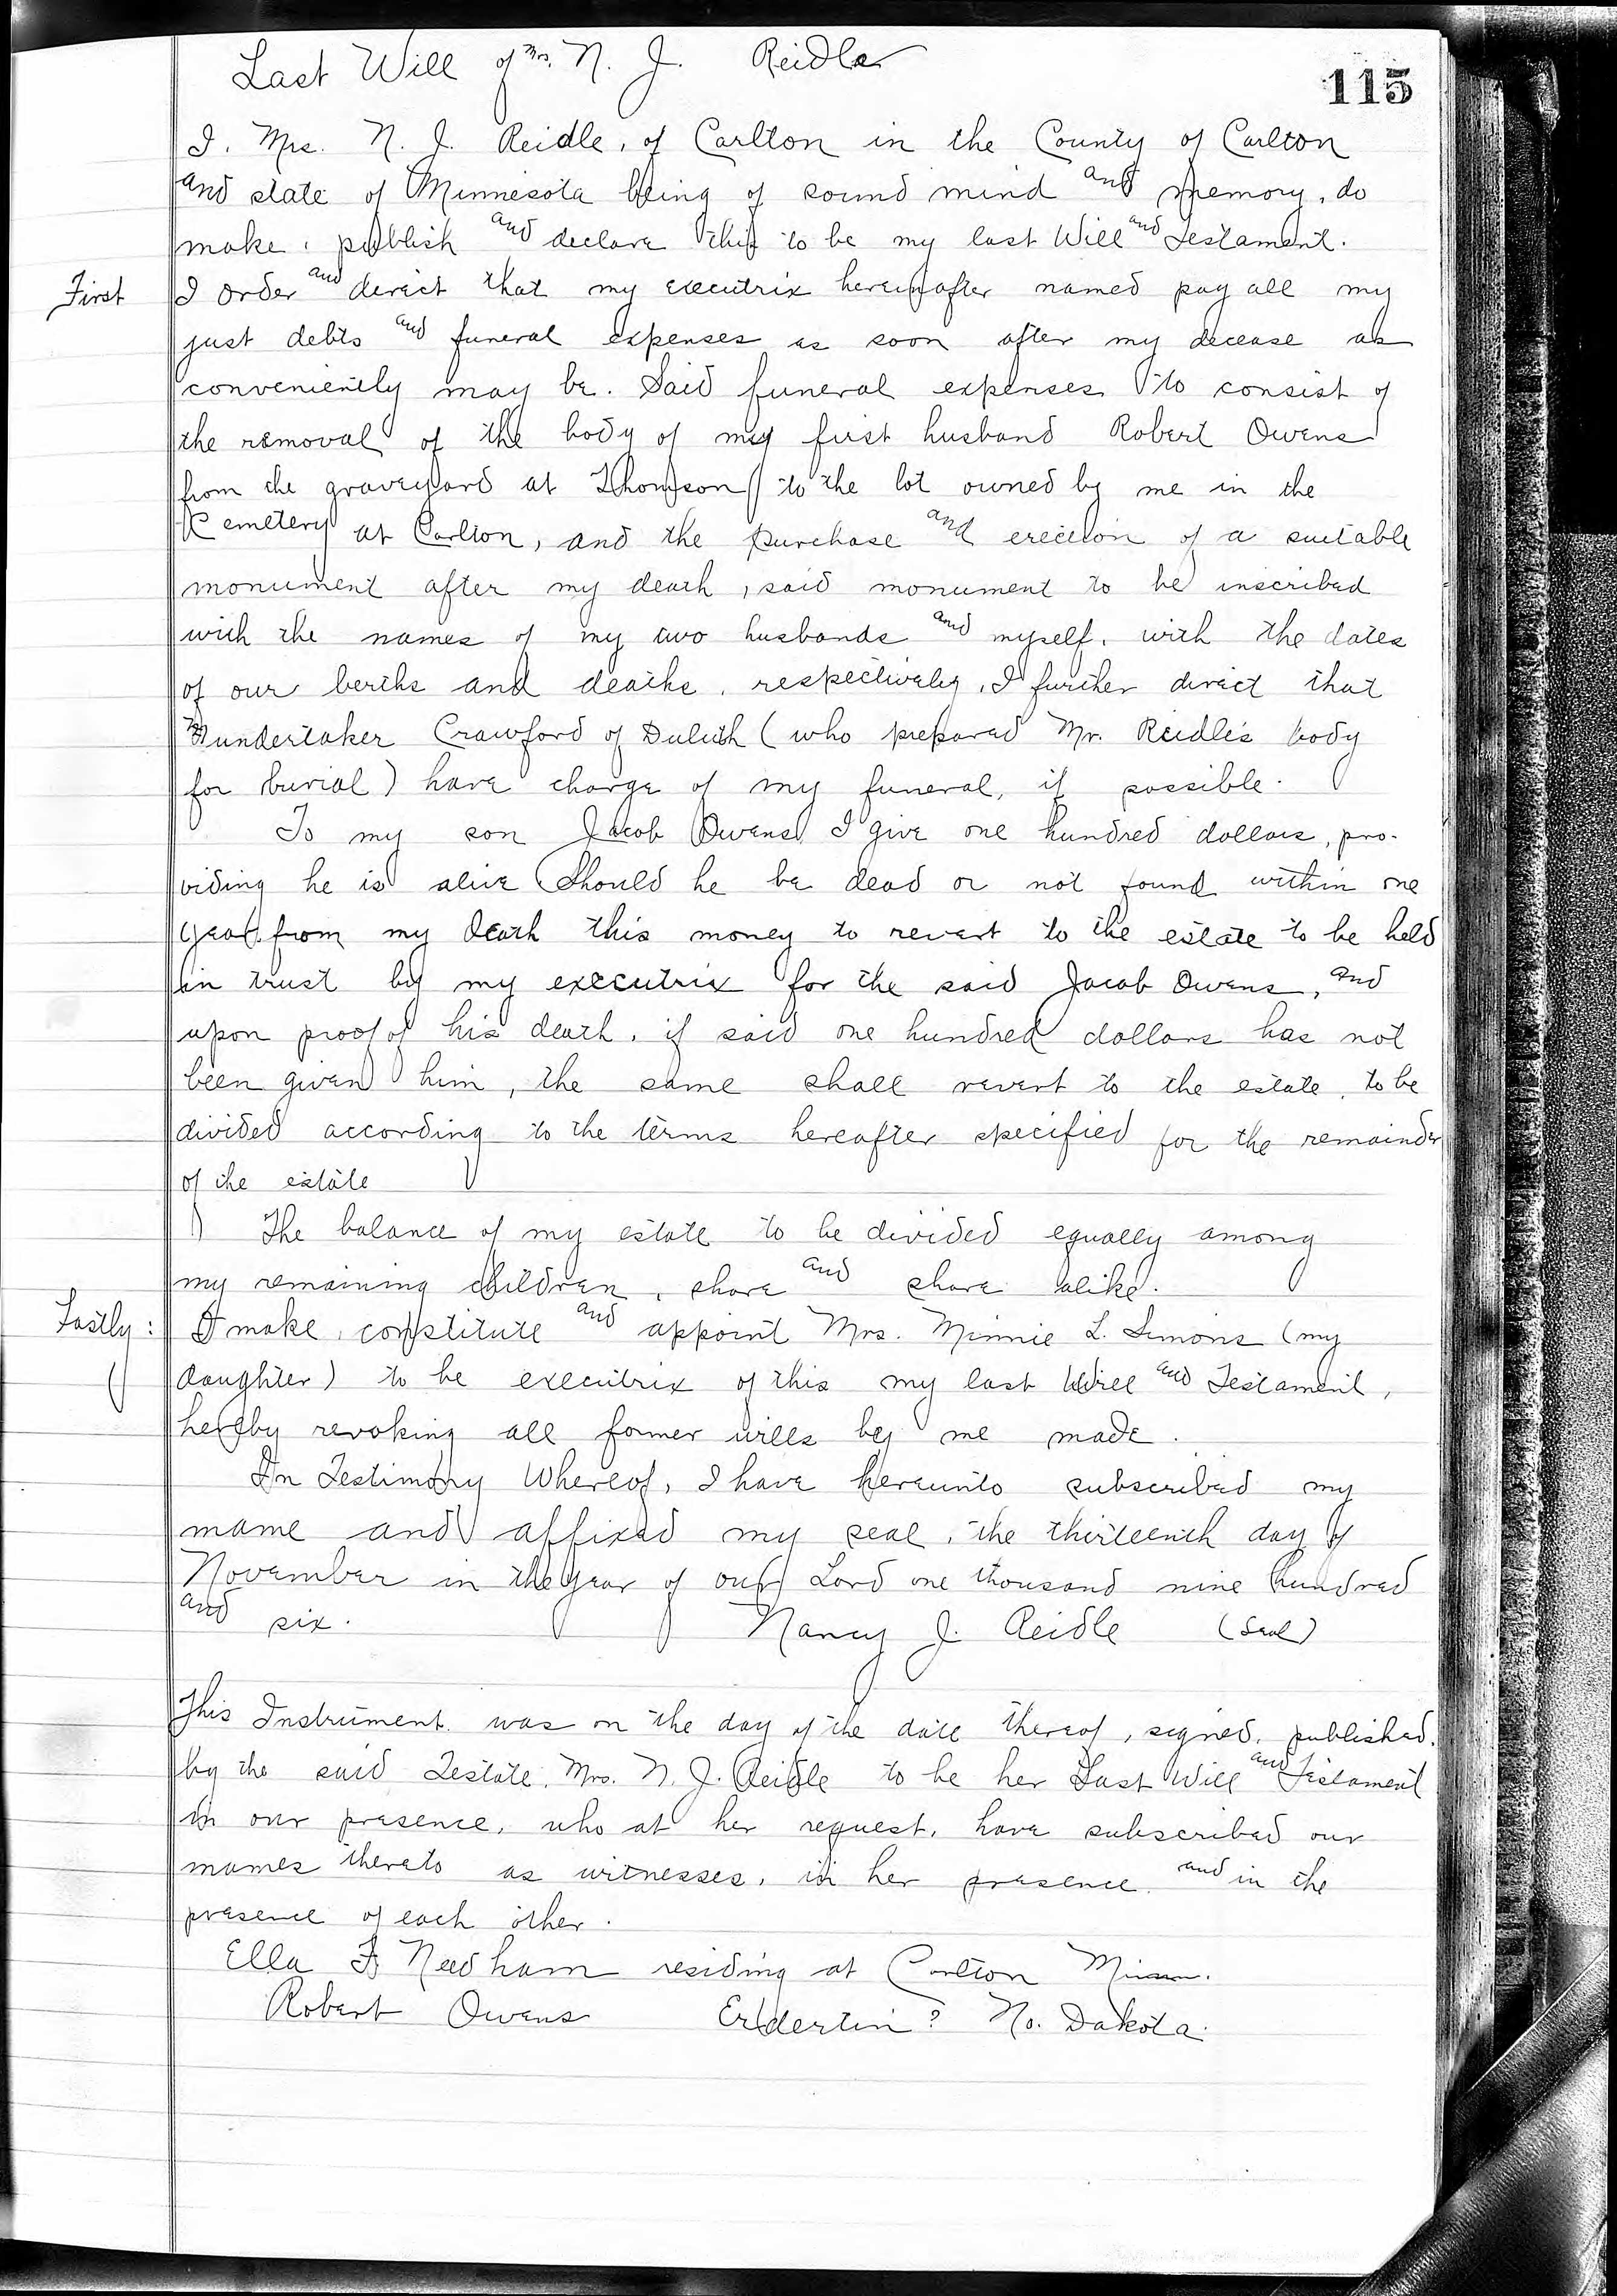 Last Will of Mrs. N. J. Reidle
115
I, Mrs. N. J. Reidle, of Carlton in the County of Carlton
and state of Minnesota being of sound mind and memory, do
make, publish and declare this to be my last Will and Testament.
First I order and direct that my executrix hereinafter named pay all my
just debts and funeral expenses as soon after my decease as
conveniently may be. Said funeral expenses to consist of
the removal of the body of my first husband Robert Owens
from the graveyard at Thomson to the lot owned by me in the
Cemetery at Carlton, and the purchase and erection of a suitable
monument after my death, said monument to be inscribed
with the names of my two husbands and myself, with the dates
of our births and deaths, respectively, I further direct that
undertaker Crawford of Duluth (who prepared Mr. Reidle's body
for burial) have charge of my funeral, if possible.
To my son Jacob Owens I give one hundred dollars, pro-
viding he is alive Should he be dead or not found within one
year from my death this money to revert to the estate to be held
in trust by my executrix for the said Jacob Owens, and
upon proof of his death, if said one hundred dollars has not
been given him, the same shall revert to the estate, to be
divided according to the terms hereafter specified for the remainder
of the estate
The balance of my estate to be divided equally among
my remaining children, share and share alike.
Lastly: I make, constitute and appoint Mrs. Minnie L. Simons (my
daughter) to be executrix of this my last Will and Testament,
hereby revoking all former wills by me made.
In Testimony Whereof, I have hereunto subscribed my
name and affixed my seal, the thirteenth day of
November in the year of our Lord one thousand nine hundred
and six. Nancy J. Reidle (Seal)
This Instrument was on the day of the date thereof, signed, published,
by the said Testate, Mrs. N. J. Reidle to be her Last Will and Testament
in our presence, who at her request, have subscribed our
names thereto as witnesses, in her presence, and in the
presence of each other.
Ella F. Needham residing at Carlton Minn.
Robert Owens ? No. Dakota.